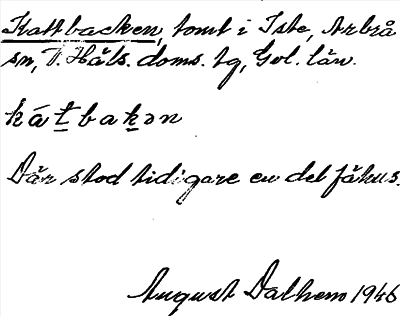 Kattbacken, tomt i Iste, Arbrå
sn, V. Häls. doms. tg, Gvl. län.
kátbakən
Där stod tidigare en del fähus.
August Dalhem 1946